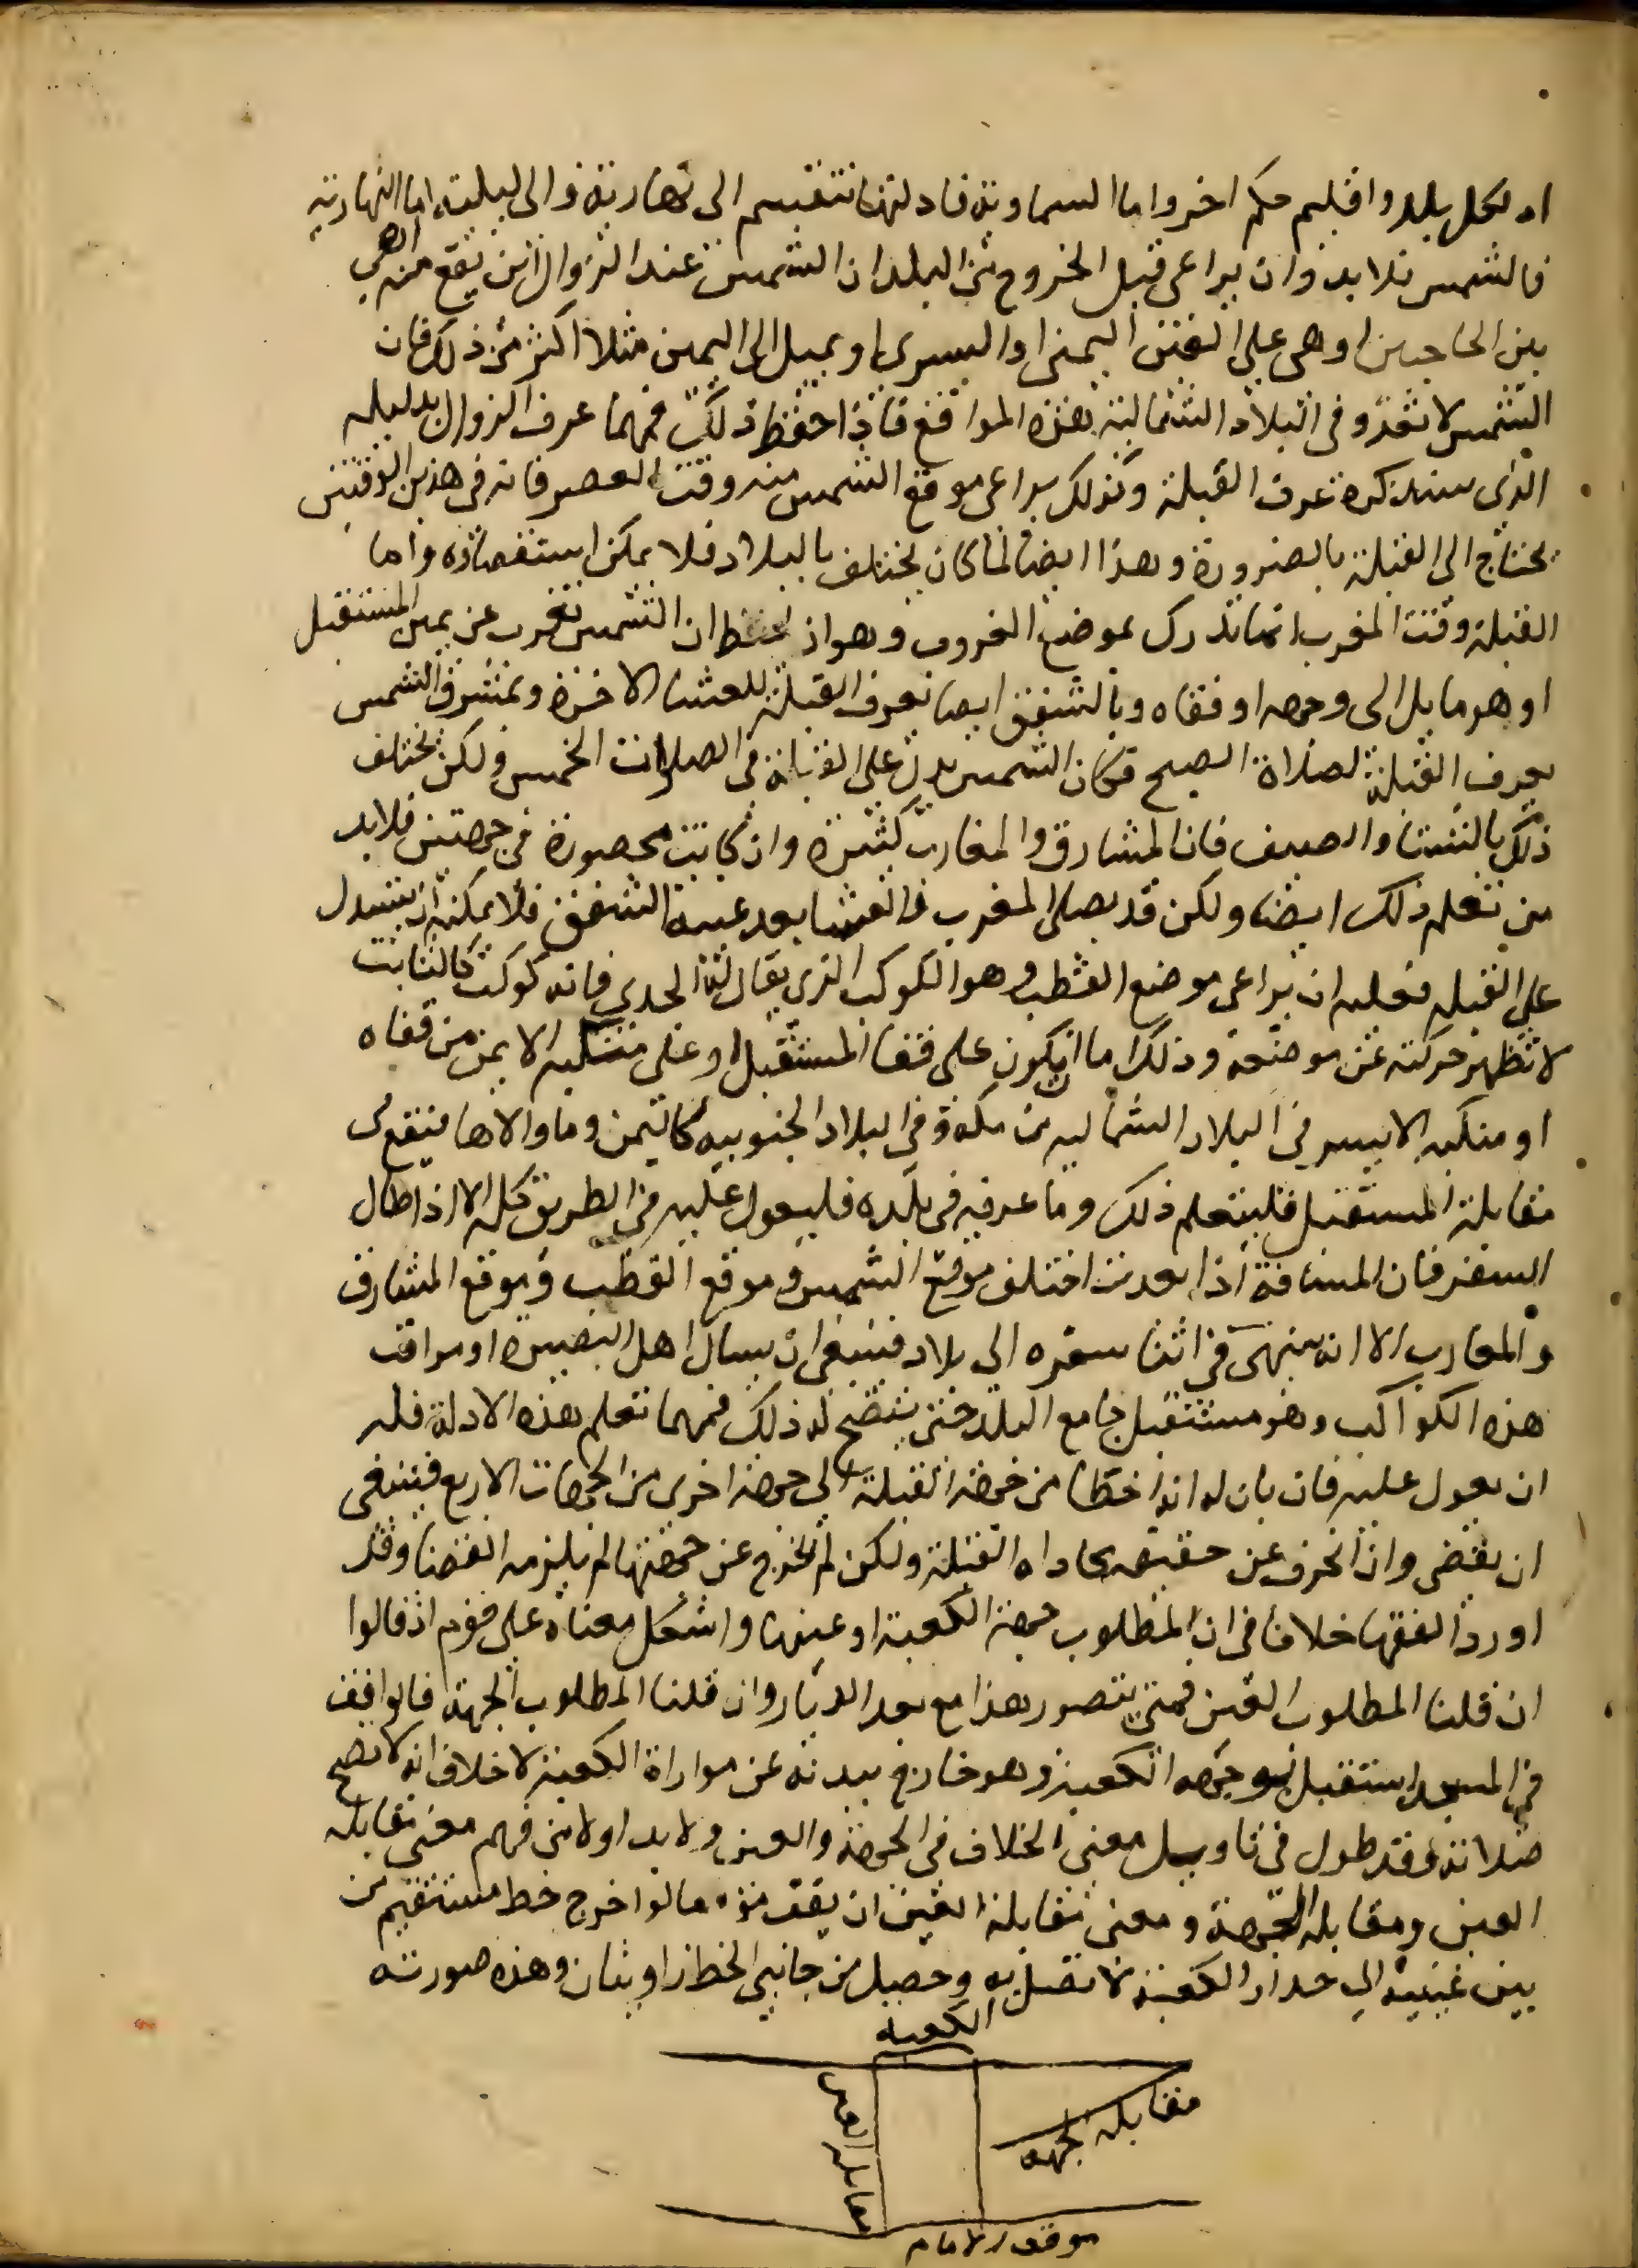 اذ لكل بلد واقليم حكم اخر واما السماوية فادلتها تنقسم الى نهارية والى ليلية اما النهارية
فالشمس فلا بد وان يراعي قبل الخروج من البلد ان الشمس عند الزوال اين تقع منه اهي
بين الحاجبين او هي على العين اليمنى او اليسرى او يميل الى اليمين مثلا اكثر من ذلك فان
الشمس لا تعدو في البلاد الشمالية هذه المواقع فاذا حفظ ذلك فمهما عرف الزوال بدليله
الذي سنذكره عرف القبلة وكذلك يراعي موقع الشمس منه وقت العصر فانه في هذين الوقتين
يحتاج الى القبلة بالضرورة وهذا ايضا لما كان يختلف بالبلاد فلا يمكن استقصاؤه واما
القبلة وقت المغرب انما تدرك بموضع الغروب وهو ان يحفظ ان الشمس تغرب عن يمين المستقبل
او هو مايل الى وجهه او قفاه وبالشفق ايضا تعرف القبلة للعشا الاخرة وبمشرق الشمس
يعرف القبلة لصلاة الصبح فكان الشمس يدل على القبلة في الصلوات الخمس ولكن يختلف
ذلك بالشتا والصيف فان المشارق والمغارب كثيرة وان كانت محصورة في جهتين فلا بد
من تعلم ذلك ايضا ولكن قد يصلي المغرب والعشا بعد غيبة الشفق فلا يمكنه ان يستدل
على القبلة فعليه ان يراعي موضع القطب وهو الكوكب الذي يقال له الجدي فانه كوكب كالثابت
لا تظهر حركته عن موضعه وذلك اما ان يكون على قفا المستقبل او على منكبه الايمن من قفاه
او منكبه الايسر في البلاد الشمالية من مكة وفي البلاد الجنوبية كاليمن وما والاها فيقع في
مقابلة المستقبل فليتعلم ذلك وما عرفه في بلده فليعول عليه في الطريق كله الا اذا طال
السفر فان المسافة اذا بعدت اختلف موقع الشمس وموقع القطب وموقع المشارق
والمغارب الا انه ينتهي في اثنا سفره الى بلاد فينبغي ان يسال اهل البصيرة او يراقب
هذه الكواكب وهو مستقبل جامع البلد حتى يتضح له ذلك فمهما تعلم هذه الادلة فله
ان يعول عليه فان بان له انه اخطا من جهة القبلة الى جهة اخرى من الجهات الاربع فينبغي
ان يقضي وان انحرف عن حقيقة محاذاة القبلة ولكن لم يخرج عن جهتها لم يلزمه القضا وقد
اورد الفقها خلافا في ان المطلوب جهة الكعبة او عينها واشكل معناه على قوم اذ قالوا
ان قلنا المطلوب العين فمتى يتصور هذا مع بعد الديار وان قلنا المطلوب الجهة فالواقف
في المسجد استقبل جهة الكعبة وهو خارج ببدنه عن موازاة الكعبة لا خلاف انه لا تصح
صلاته وقد طول في تاويل معنى الخلاف في الجهة والعين ولا بد اولا من فهم معنى مقابلة
العين ومقابلة الجهة ومعنى مقابلة العين ان يقف موقفا لو اخرج خط مستقيم من
بين عينيه الى جدار الكعبة لاتصل به وحصل من جانبي الخط زاويتان وهذه صورته
الكعبة
مقابلة الجهة
مقابلة العين
موقف الامام